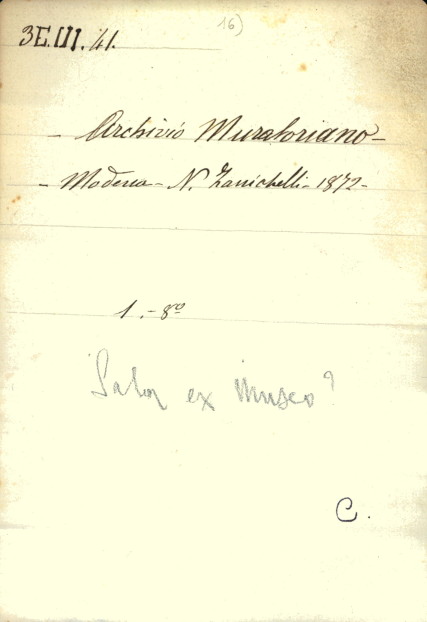 16)
3E.III.41.
- Archivio Muratoriano -
- Modena - N. Zanichelli - 1872 -
1. - 8º
ex Museo?
C.